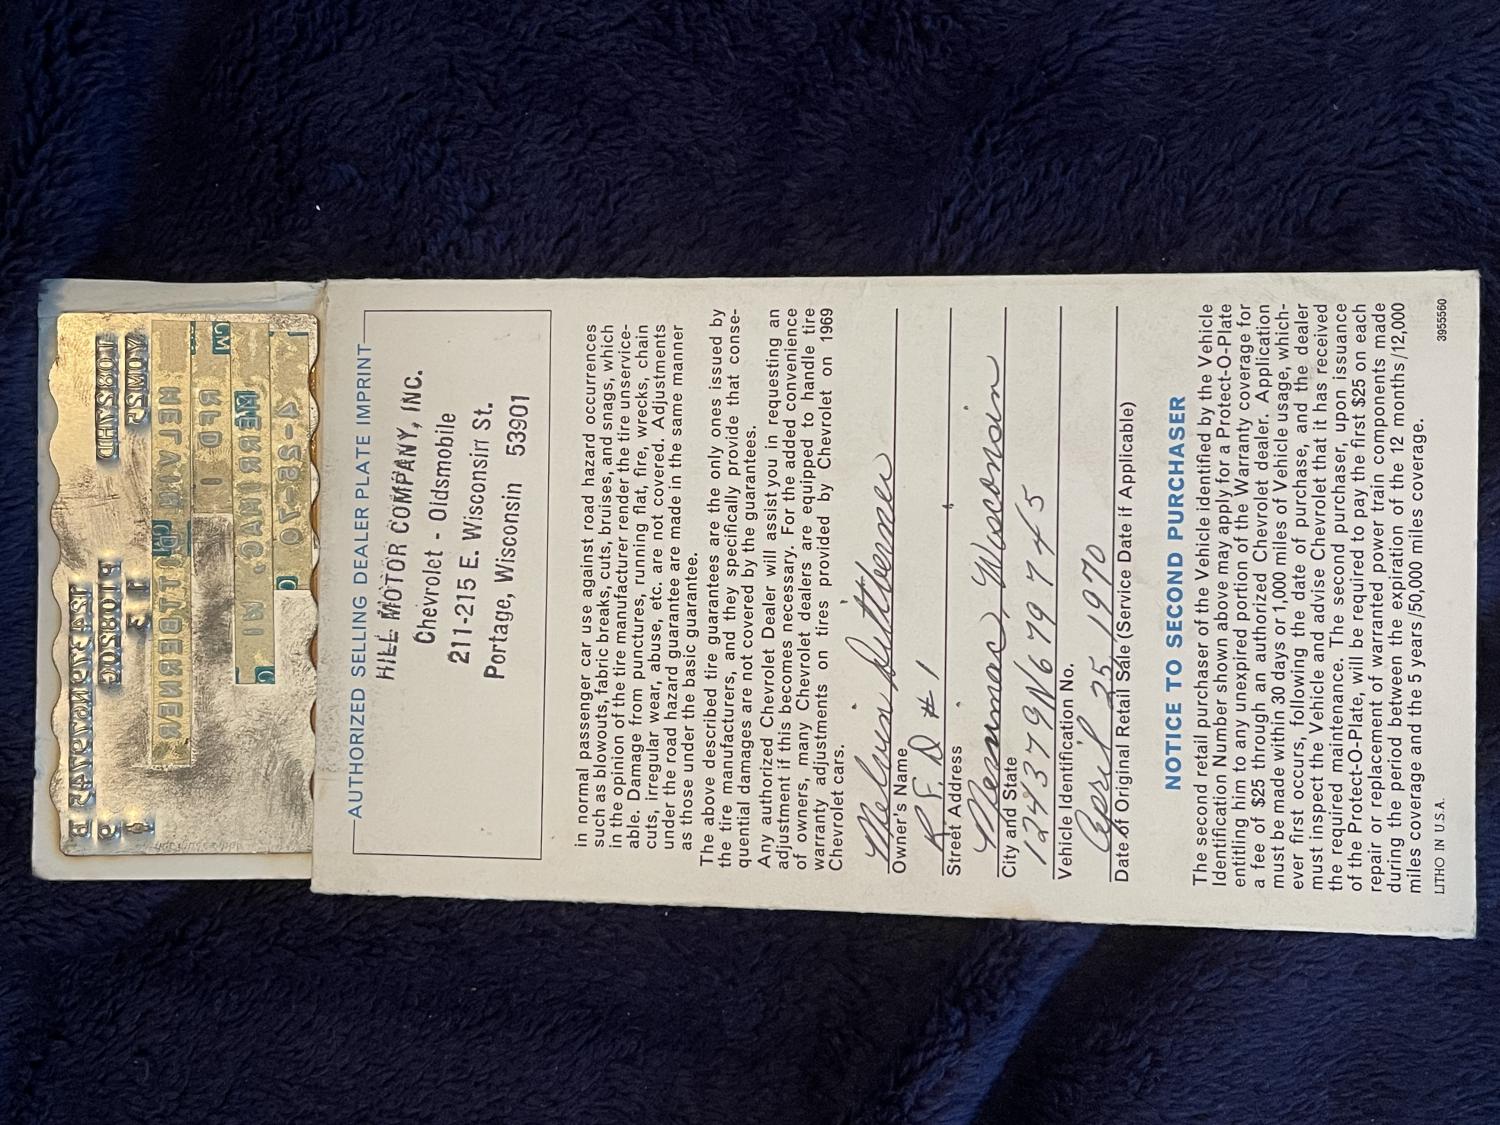 MELVIN DITTBERNER
RFD 1
MERRIMAC. WI
4-25-70
AUTHORIZED SELLING DEALER PLATE IMPRINT
HILL MOTOR COMPANY, INC.
Chevrolet - Oldsmobile
211-215 E. Wisconsin St.
Portage, Wisconsin 53901
in normal passenger car use against road hazard occurrences
such as blowouts, fabric breaks, cuts, bruises, and snags, which
in the opinion of the tire manufacturer render the tire unservice-
able. Damage from punctures, running flat, fire, wrecks, chain
cuts, irregular wear, abuse, etc. are not covered. Adjustments
under the road hazard guarantee are made in the same manner
as those under the basic guarantee.
The above described tire guarantees are the only ones issued by
the tire manufacturers, and they specifically provide that conse-
quential damages are not covered by the guarantees.
Any authorized Chevrolet Dealer will assist you in requesting an
adjustment if this becomes necessary. For the added convenience
of owners, many Chevrolet dealers are equipped to handle tire
warranty adjustments on tires provided by Chevrolet on 1969
Chevrolet cars.
Melvin Dittberner
Owner's Name
R.F.D #1
Street Address
Merrimac, Wisconsin
City and State
124379N679745
Vehicle Identification No.
April 25, 1970
Date of Original Retail Sale (Service Date if Applicable)
NOTICE TO SECOND PURCHASER
The second retail purchaser of the Vehicle identified by the Vehicle
Identification Number shown above may apply for a Protect-O-Plate
entitling him to any unexpired portion of the Warranty coverage for
a fee of $25 through an authorized Chevrolet dealer. Application
must be made within 30 days or 1,000 miles of Vehicle usage, which-
ever first occurs, following the date of purchase, and the dealer
must inspect the Vehicle and advise Chevrolet that it has received
the required maintenance. The second purchaser, upon issuance
of the Protect-O-Plate, will be required to pay the first $25 on each
repair or replacement of warranted power train components made
during the period between the expiration of the 12 months/12,000
miles coverage and the 5 years/50,000 miles coverage.
LITHO IN U.S.A.
3955560